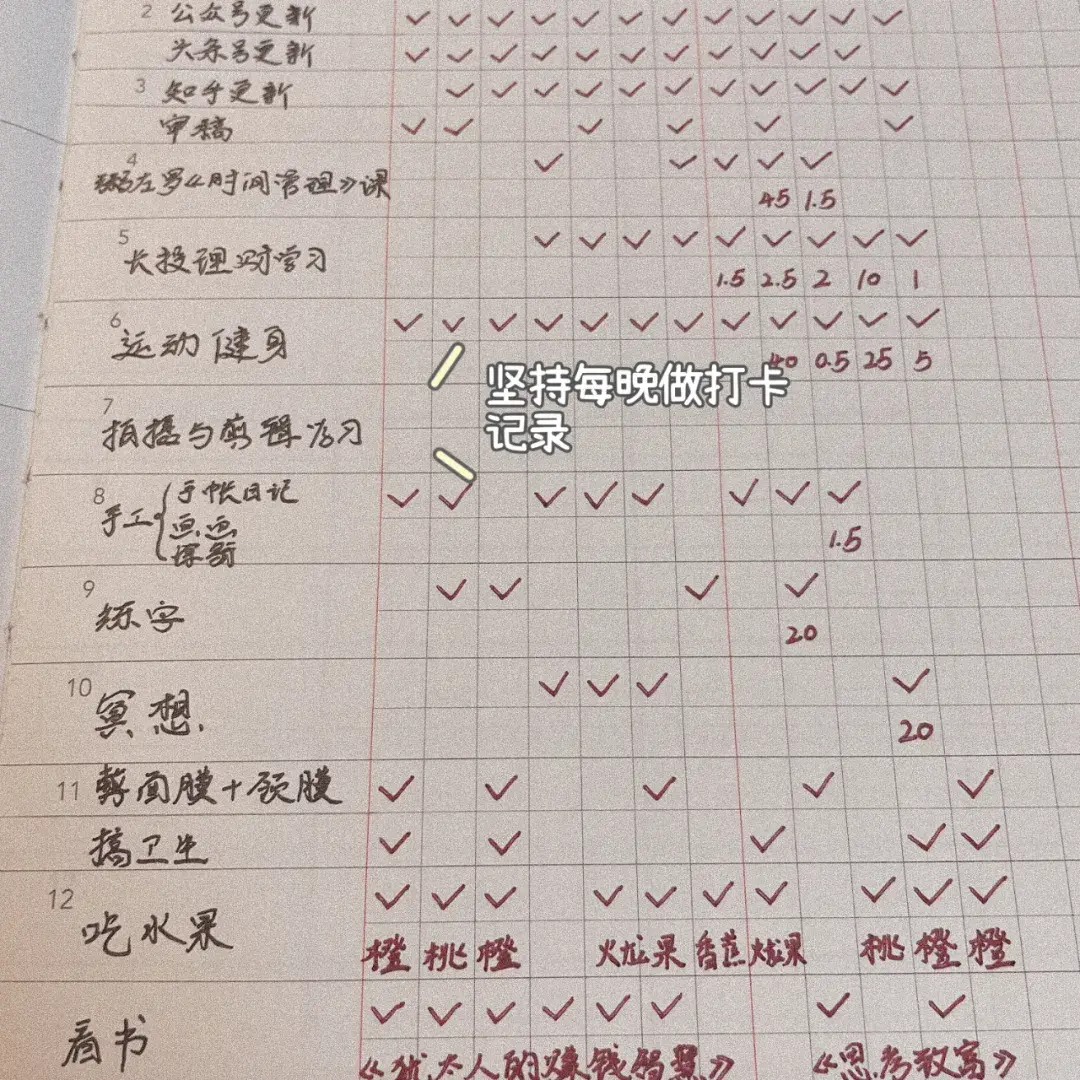 2 公众号更新
头条号更新
3 知乎更新
审稿
4 粥左罗《时间管理》课
45 1.5
5 长投理财学习
1.5 2.5 2 10 1
6 运动健身
40 0.5 25 5
坚持每晚做打卡
记录
7 拍摄与剪辑学习
8 手工 手帐日记
画画
1.5
9 练字
20
10 冥想.
20
11 敷面膜+颈膜
搞卫生
12 吃水果
橙 桃 橙 火龙果 香蕉 火龙果 桃 橙 橙
看书
《犹太人的赚钱智慧》 《思考致富》